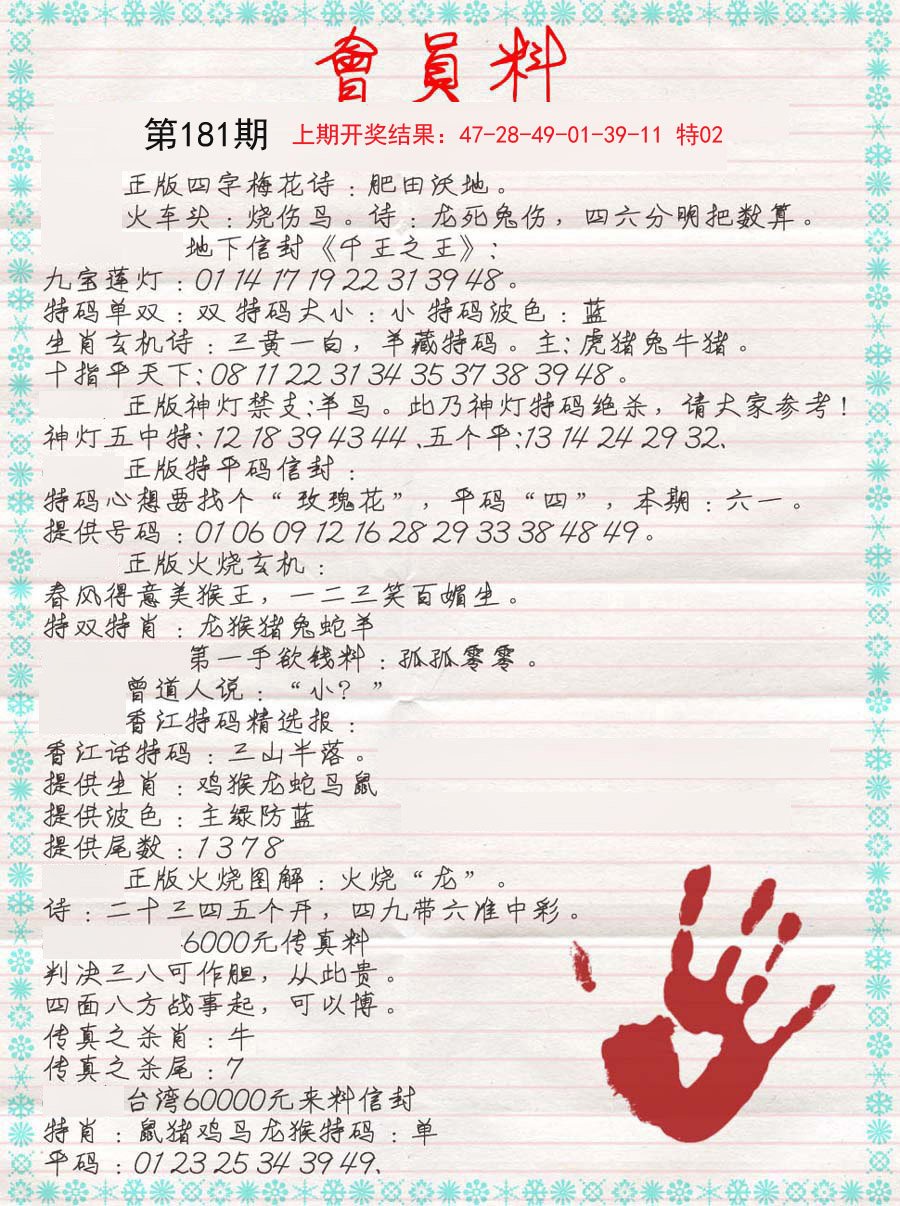 會員料
第181期 上期开奖结果：47-28-49-01-39-11 特02
正版四字梅花诗：肥田沃地。
火车头：烧伤鸟。诗：龙死兔伤，四六分明把数算。
地下信封《千王之王》：
九宝莲灯：01 14 17 19 22 31 39 48。
特码单双：双 特码大小：小 特码波色：蓝
生肖玄机诗：三黄一白，羊藏特码。主：虎猪兔牛猪。
十指平天下：08 11 22 31 34 35 37 38 39 48。
正版神灯禁支：羊鸟。此乃神灯特码绝杀，请大家参考！
神灯五中特：12 18 39 43 44 .五个平：13 14 24 29 32.
正版特平码信封：
特码心想要找个“玫瑰花”，平码“四”，本期：六一。
提供号码：01 06 09 12 16 28 29 33 38 48 49。
正版火烧玄机：
春风得意美猴王，一二三笑百媚生。
特双特肖：龙猴猪兔蛇羊
第一手欲钱料：孤孤零零。
曾道人说：“小？”
香江特码精选报：
香江话特码：三山半落。
提供生肖：鸡猴龙蛇鸟鼠
提供波色：主绿防蓝
提供尾数：1 3 7 8
正版火烧图解：火烧“龙”。
诗：二十三四五个开，四九带六准中彩。
6000元传真料
判决三八可作胆，从此贵。
四面八方战事起，可以博。
传真之杀肖：牛
传真之杀尾：7
台湾60000元来料信封
特肖：鼠猪鸡鸟龙猴特码：单
平码：01 23 25 34 39 49.